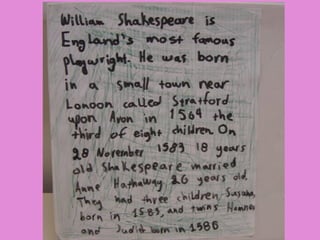 William Shakespeare is
England's most famous
playwright. He was born
in a small town near
London called Stratford
upon Avon in 1564 the
third of eight children. On
28 November 1583 18 years
old Shakespeare married
Anne Hathaway 26 years old.
They had three children, Susana,
born in 1583, and twins Hamnes
and Judith born in 1586